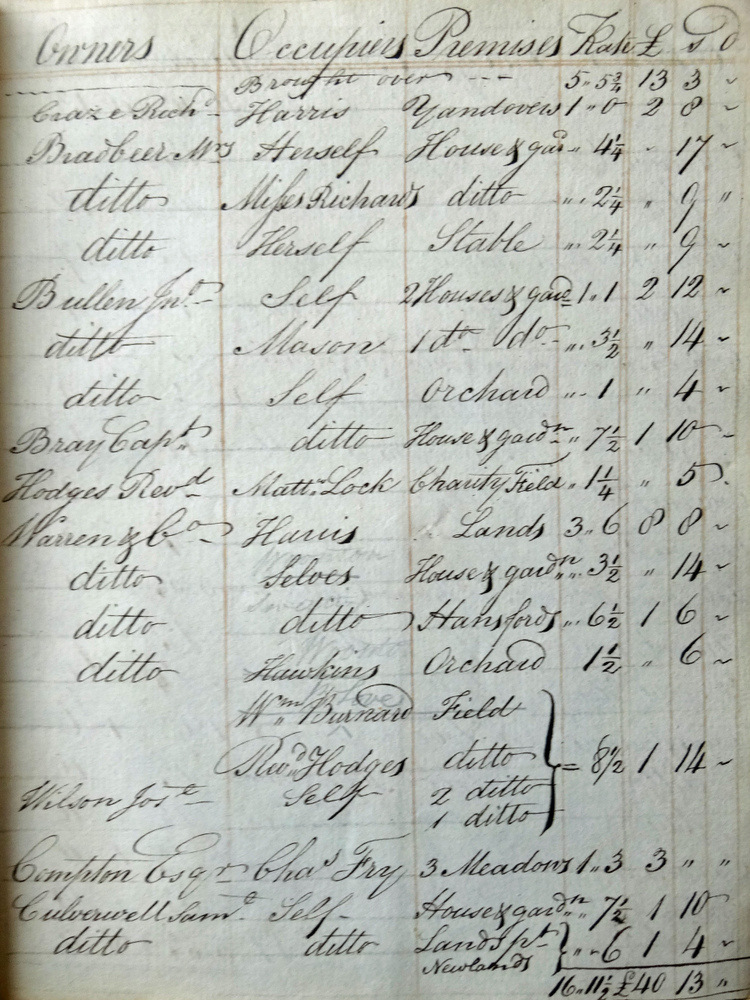 Owners Occupiers Premises Rate £ s d
Brought over --- 5 „ 5¾ 13 3 „
Craze Richd Harris Yandovers 1 „ 0 2 8 „
Bradbeer Mrs Herself House & gard „ 4¼ „ 17 „
ditto Misses Richards ditto „ 2¼ „ 9 „
ditto Herself Stable „ 2¼ „ 9 „
Bullen Jno Self 2 Houses & gard 1 „ 1 2 12 „
ditto Mason 1 do do „ 3½ „ 14 „
ditto Self Orchard „ 1 „ 4 „
Bray Capt ditto House & gardn „ 7½ 1 10 „
Hodges Revd Mattw Lock Charity Field „ 1¼ „ 5 „
Warren & Co Harris Lands 3 „ 6 8 8 „
ditto Selves House & gardn „ 3½ „ 14 „
ditto ditto Hansfords „ 6½ 1 6 „
ditto Hawkins Orchard 1½ „ 6 „
Wm Burnard Field
Revd Hodges ditto } = 8½ 1 14 „
Wilson Jos Self 2 ditto
1 ditto
Compton Esqr Chas Fry 3 Meadows 1 „ 3 3 „ „
Culverwell Saml Self House & gardn „ 7½ 1 10
ditto ditto Lands pt } „ 6 1 4 „
Newlands
16 „ 11½ £40 13 „